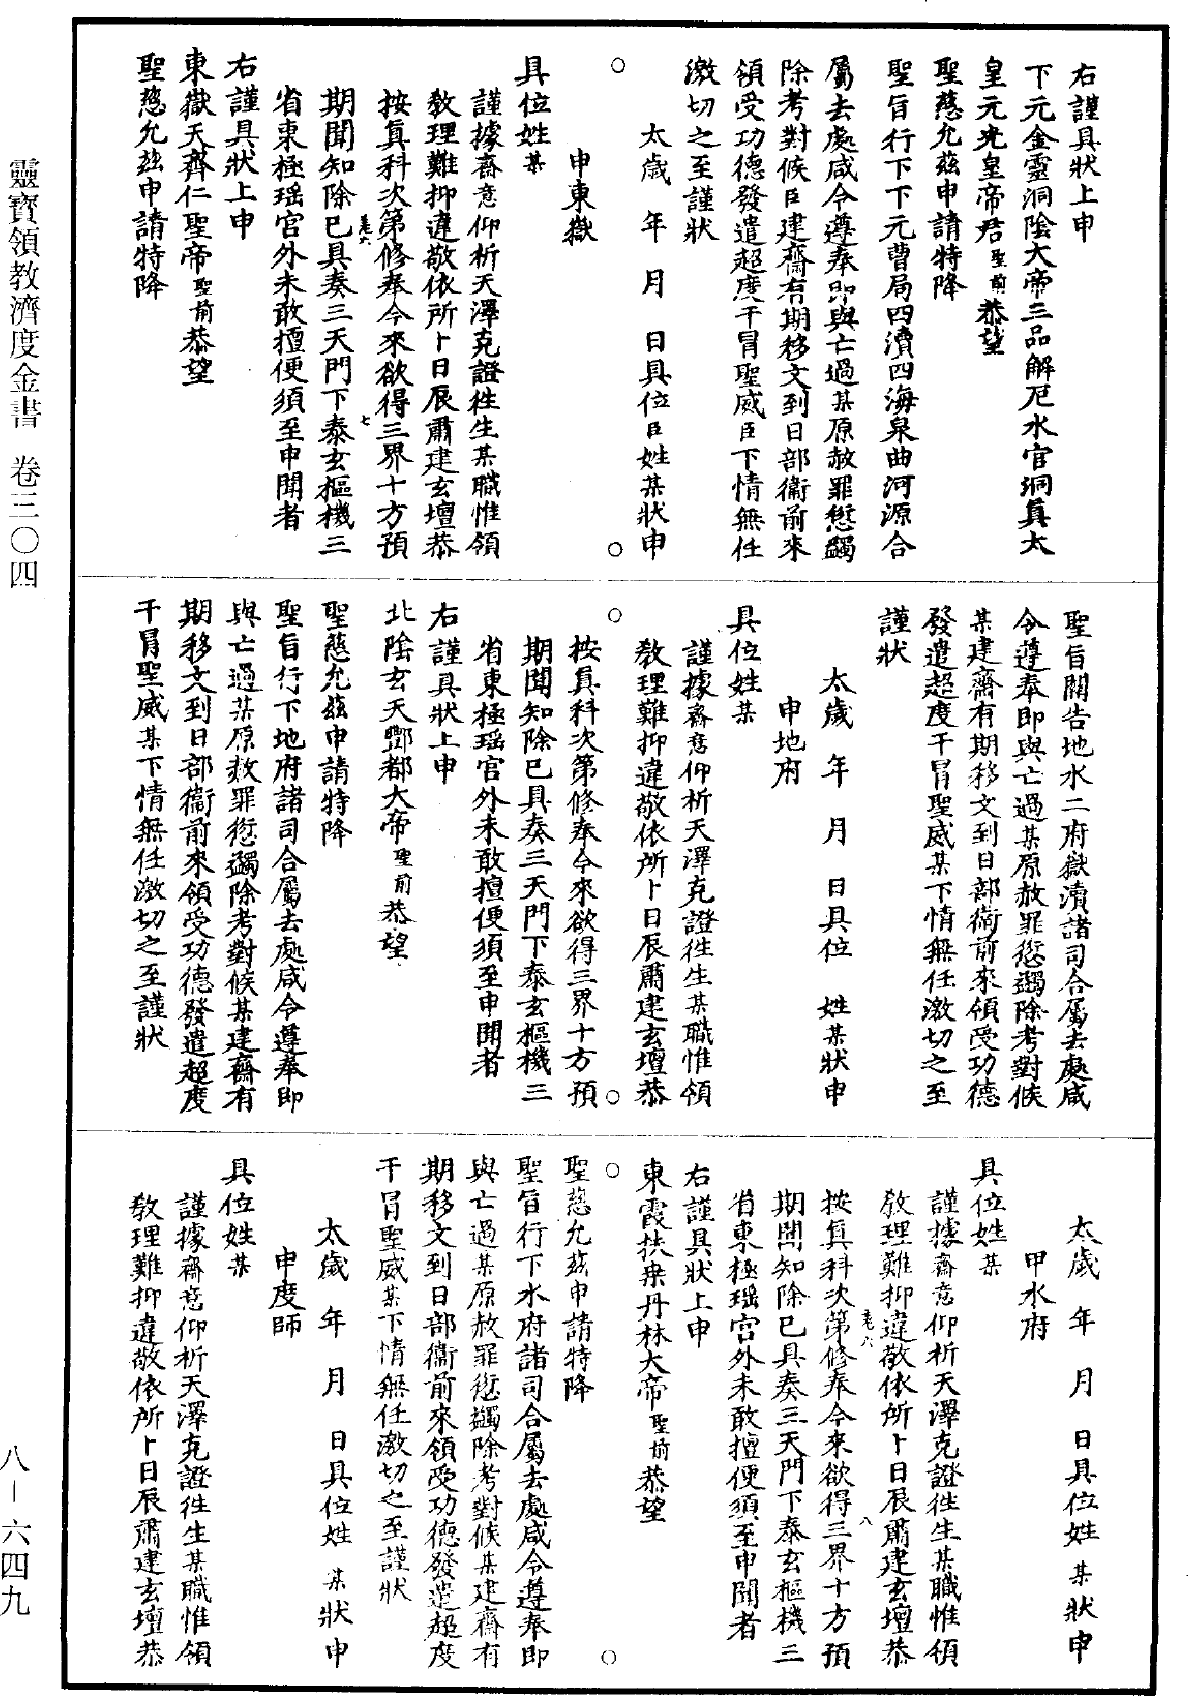 靈寶領教濟度金書 卷三〇四
八—六四九
右謹具狀上申
下元金靈洞陰大帝三品解厄水官洞真太
皇元光皇帝君聖前恭望
聖慈允茲申請特降
聖旨行下下元曹局四瀆四海泉曲河源合
屬去處咸令遵奉即與亡過某原赦罪愆蠲
除考對候臣建齋有期移文到日部衞前來
領受功德發遣超度干冒聖威臣下情無任
激切之至謹狀
太歲 年 月 日具位臣姓某狀申
申東嶽
具位姓某
謹據齋意仰祈天澤克證徃生某職惟領
敎理難抑違敬依所卜日辰肅建玄壇恭
按真科次第修奉今來欲得三界十方預
卷六 七
期聞知除已具奏三天門下泰玄樞機三
省東極瑶宮外未敢擅便須至申聞者
右謹具狀上申
東嶽天齊仁聖帝聖前恭望
聖慈允茲申請特降
聖旨關告地水二府嶽瀆諸司合屬去處咸
令遵奉即與亡過某原赦罪愆蠲除考對候
某建齋有期移文到日部衞前來領受功德
發遣超度干冒聖威某下情無任激切之至
謹狀
太歲 年 月 日具位 姓某狀申
申地府
具位姓某
謹據齋意仰祈天澤克證徃生某職惟領
敎理難抑違敬依所卜日辰肅建玄壇恭
按真科次第修奉今來欲得三界十方預
期聞知除已具奏三天門下泰玄樞機三
省東極瑶宮外未敢擅便須至申聞者
右謹具狀上申
北陰玄天酆都大帝聖前恭望
聖慈允茲申請特降
聖旨行下地府諸司合屬去處咸令遵奉即
與亡過某原赦罪愆蠲除考對候某建齋有
期移文到日部衞前來領受功德發遣超度
干冒聖威某下情無任激切之至謹狀
太歲 年 月 日具位姓某狀申
申水府
具位姓某
謹據齋意仰祈天澤克證徃生某職惟領
敎理難抑違敬依所卜日辰肅建玄壇恭
卷六 八
按真科次第修奉今來欲得三界十方預
期聞知除已具奏三天門下泰玄樞機三
省東極瑶宮外未敢擅便須至申聞者
右謹具狀上申
東霞扶桒丹林大帝聖前恭望
聖慈允茲申請特降
聖旨行下水府諸司合屬去處咸令遵奉即
與亡過某原赦罪愆蠲除考對候某建齋有
期移文到日部衞前來領受功德發遣超度
干冒聖威某下情無任激切之至謹狀
太歲 年 月 日具位姓某狀申
申度師
具位姓某
謹據齋意仰祈天澤克證徃生某職惟領
敎理難抑違敬依所卜日辰肅建玄壇恭